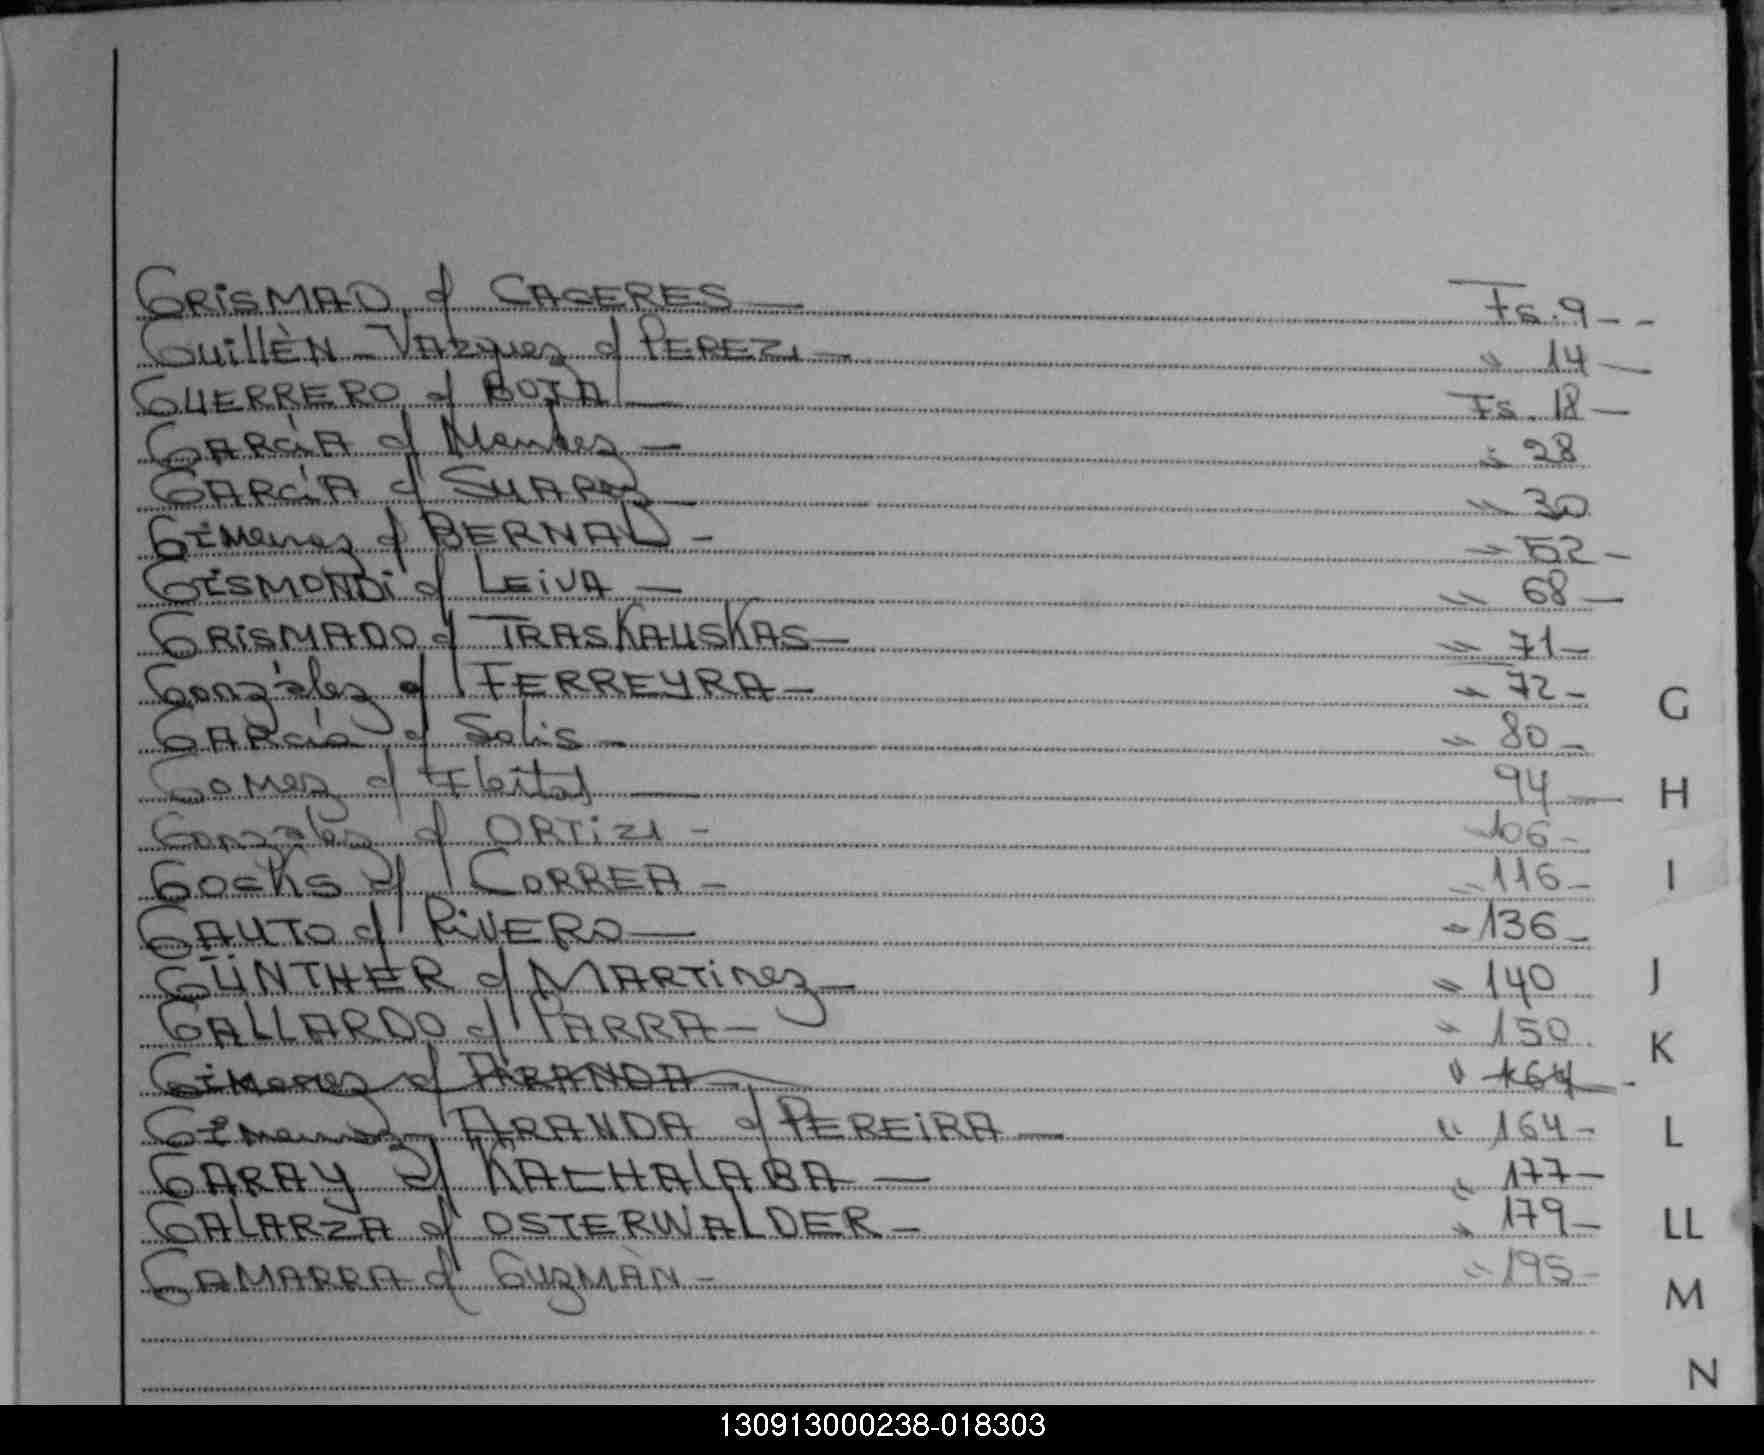 GRISMADO c/ CACERES — Fs. 9 - -
Guillèn - Vazquez c/ PEREZ — " 14 —
GUERRERO c/ BOJA — Fs. 18 —
GARCÍA c/ Mendez — " 28
GARCÍA c/ SUAREZ — " 30
Gimenez c/ BERNAL - " 52 -
GISMONDI c/ LEIVA — " 68 —
GRISMADO c/ TRASKAUSKAS — " 71 -
Gonzàlez c/ FERREYRA - " 72 -
GARCía c/ Solis - " 80 -
Gomez c/ Fleitas — 94 —
Gonzàlez c/ ORTIZ - " 106 -
c/ CORREA - " 116 -
GAUTO c/ RIVERO — " 136 -
GÜNTHER c/ MARTINEZ — " 140
GALLARDO c/ PARRA - " 150
Gimenez c/ ARANDA " 164 -
Gimenez ARANDA c/ PEREIRA — " 164 -
GARAY c/ KACHALABA — " 177 -
GALARZA c/ OSTERWALDER - " 179 -
GAMARRA c/ GUZMÀN - " 195 -
G
H
I
J
K
L
LL
M
N
130913000238-018303